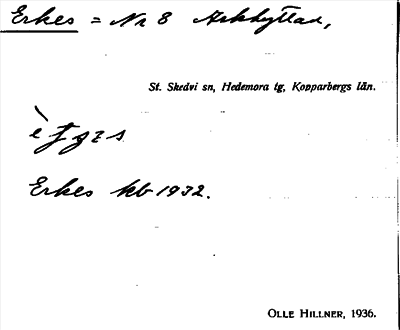 Erkes = Nr 8 Arkhyttan,
St. Skedvi sn, Hedemora tg, Kopparbergs län.
Erkes kb 1932.
OLLE HILLNER, 1936.